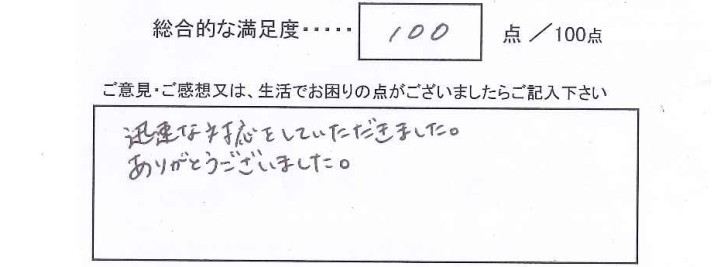 総合的な満足度・・・・・ 100 点 ／100点
ご意見・ご感想又は、生活でお困りの点がございましたらご記入下さい
迅速な対応をしていただきました。
ありがとうございました。